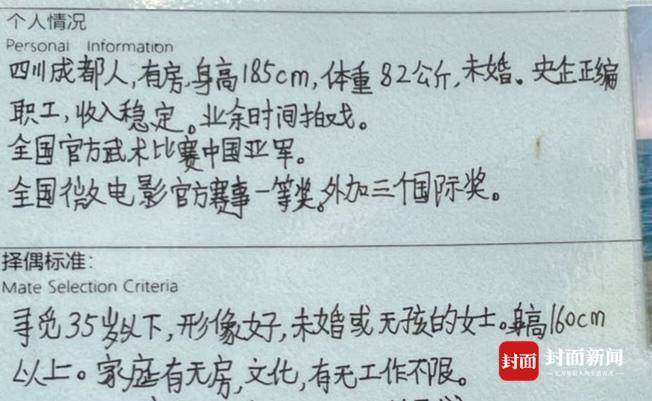 个人情况
Personal Information
四川成都人,有房,身高185cm,体重82公斤,未婚。央企正编
职工,收入稳定。业余时间拍戏。
全国官方武术比赛中国亚军。
全国微电影官方赛事一等奖。外加三个国际奖。
择偶标准:
Mate Selection Criteria
寻觅35岁以下,形像好,未婚或无孩的女士。身高160cm
以上。家庭有无房,文化,有无工作不限。
封面 封面新闻